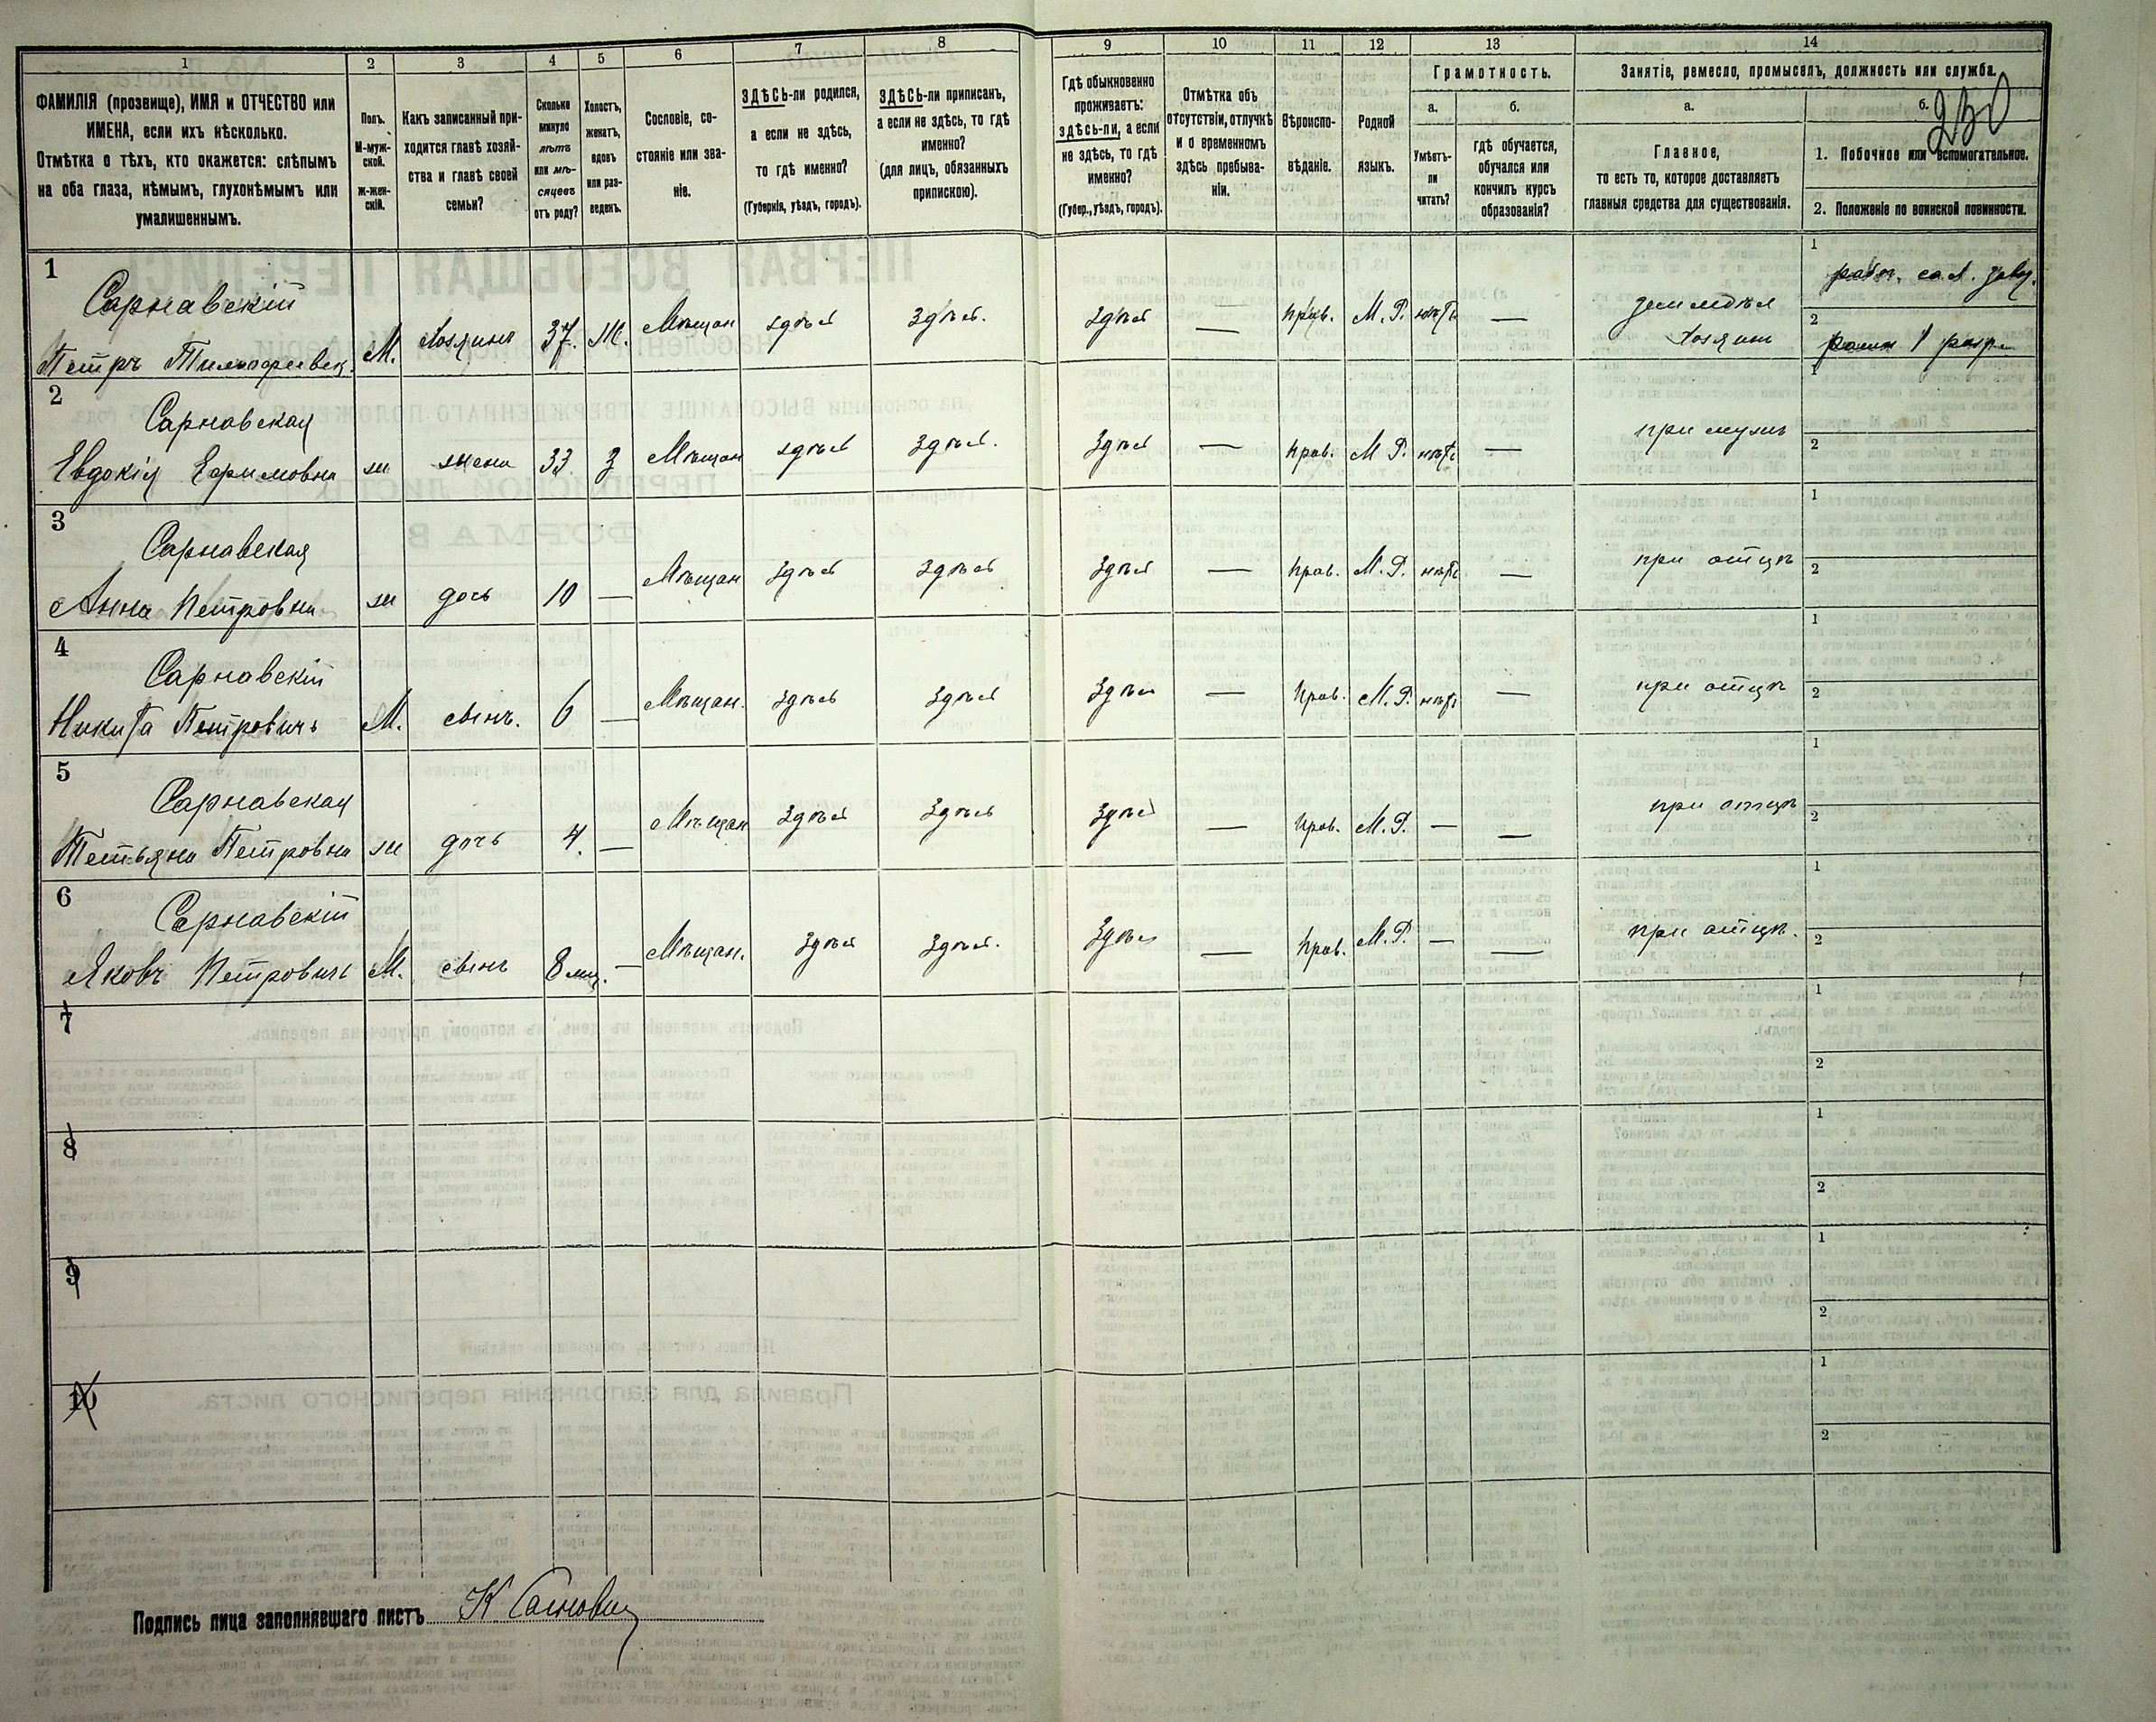 1 2 3 4 5 6 7 8 9 10 11 12 13 14
ФАМИЛІЯ (прозвище), ИМЯ и ОТЧЕСТВО или
ИМЕНА, если ихъ нѣсколько.
Отмѣтка о тѣхъ, кто окажется: слѣпымъ
на оба глаза, нѣмымъ, глухонѣмымъ или
умалишеннымъ.
Полъ.
М-муж-
ской.
ж-жен-
скій.
Какъ записанный при-
ходится главѣ хозяй-
ства и главѣ своей
семьи?
Сколько
минуло
лѣтъ
или мѣ-
сяцевъ
отъ роду?
Холостъ,
женатъ,
вдовъ
или раз-
веденъ.
Сословіе, со-
стояніе или зва-
ніе.
ЗДѢСЬ-ли родился,
а если не здѣсь,
то гдѣ именно?
(Губернія, уѣздъ, городъ).
ЗДѢСЬ-ли приписанъ,
а если не здѣсь, то гдѣ
именно?
(для лицъ, обязанныхъ
припискою).
Гдѣ обыкновенно
проживаетъ:
здѣсь-ли, а если
не здѣсь, то гдѣ
именно?
(Губер., уѣздъ, городъ).
Отмѣтка объ
отсутствіи, отлучкѣ
и о временномъ
здѣсь пребыва-
ніи.
Вѣроиспо-
вѣданіе.
Родной
языкъ.
Грамотность.
а.
Умѣетъ-
ли
читать?
б.
гдѣ обучается,
обучался или
кончилъ курсъ
образованія?
Занятіе, ремесло, промыселъ, должность или служба.
а.
Главное,
то есть то, которое доставляетъ
главныя средства для существованія.
б.
230
1. Побочное или вспомогательное.
2. Положеніе по воинской повинности.
1
Сарнавскій
Петръ Тимофеевич М. Хозяинъ 37. Ж. Мѣщан здѣсь здѣсь. здѣсь — прав. М. Р. нѣтъ —
земледѣл
хозяин
1 рабоч. сах. завод.
2 ратн 1 разр.
2
Сарнавская
Евдокія Ефимовна ж жена 33. З Мѣщан здѣсь здѣсь. здѣсь — прав. М. Р. нѣтъ — при мужѣ
1
2
3
Сарнавская
Анна Петровна ж дочь 10 — Мѣщан здѣсь здѣсь здѣсь — прав. М. Р. нѣтъ — при отцѣ
1
2
4
Сарнавскій
Никита Петровичъ М. сынъ. 6 — Мѣщан. здѣсь здѣсь здѣсь — прав. М. Р. нѣтъ — при отцѣ
1
2
5
Сарнавская
Тетьяна Петровна ж дочь 4. — Мѣщан здѣсь здѣсь здѣсь — прав. М. Р. — — при отцѣ
1
2
6
Сарнавскій
Яковъ Петровичъ М. сынъ 8 мц. — Мѣщан. здѣсь здѣсь. здѣсь — прав. М. Р. — — при отцѣ.
1
2
7
1
2
8
1
2
9
1
2
10
1
2
Подпись лица заполнявшаго листъ К